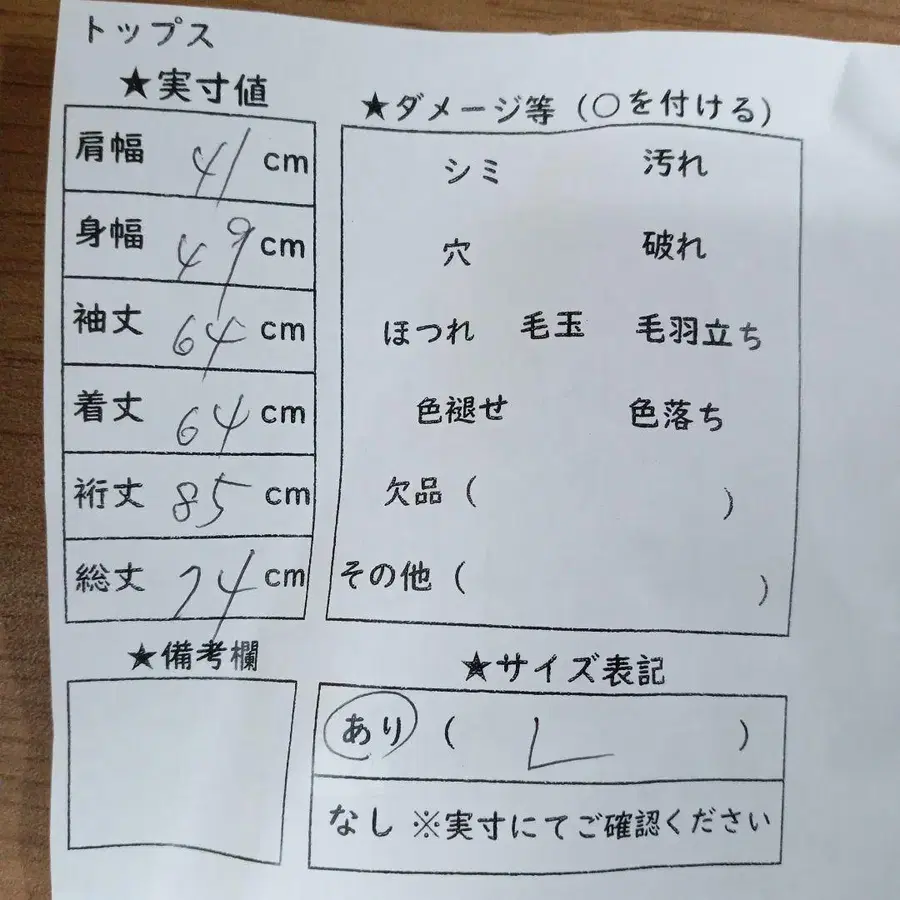 トップス
★実寸値
肩幅 41 cm
身幅 49 cm
袖丈 64 cm
着丈 64 cm
裄丈 85 cm
総丈 74 cm
★ダメージ等（○を付ける）
シミ 汚れ
穴 破れ
ほつれ 毛玉 毛羽立ち
色褪せ 色落ち
欠品（ ）
その他（ ）
★備考欄
★サイズ表記
あり（ L ）
なし ※実寸にてご確認ください